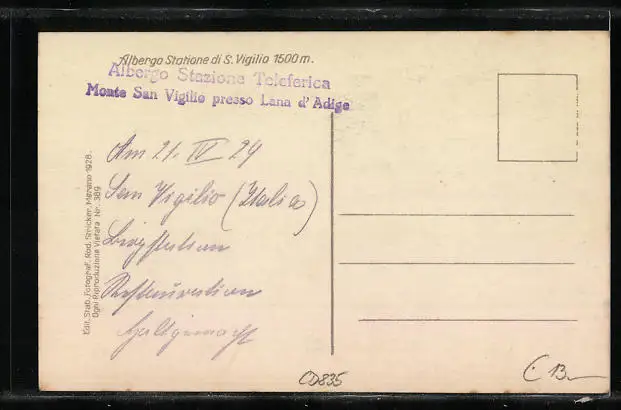 Albergo Statione di S. Vigilio 1500 m.
Albergo Stazione Teleferica
Monte San Vigilio presso Lana d'Adige
Am 21. IV 29
San Vigilio (Italia)
Bergstation
Restauration
Edit. Stab. Fotograf. Rod. Stricker, Merano 1928.
Ogni Riproduzione Vietata Nr. 389
CD835